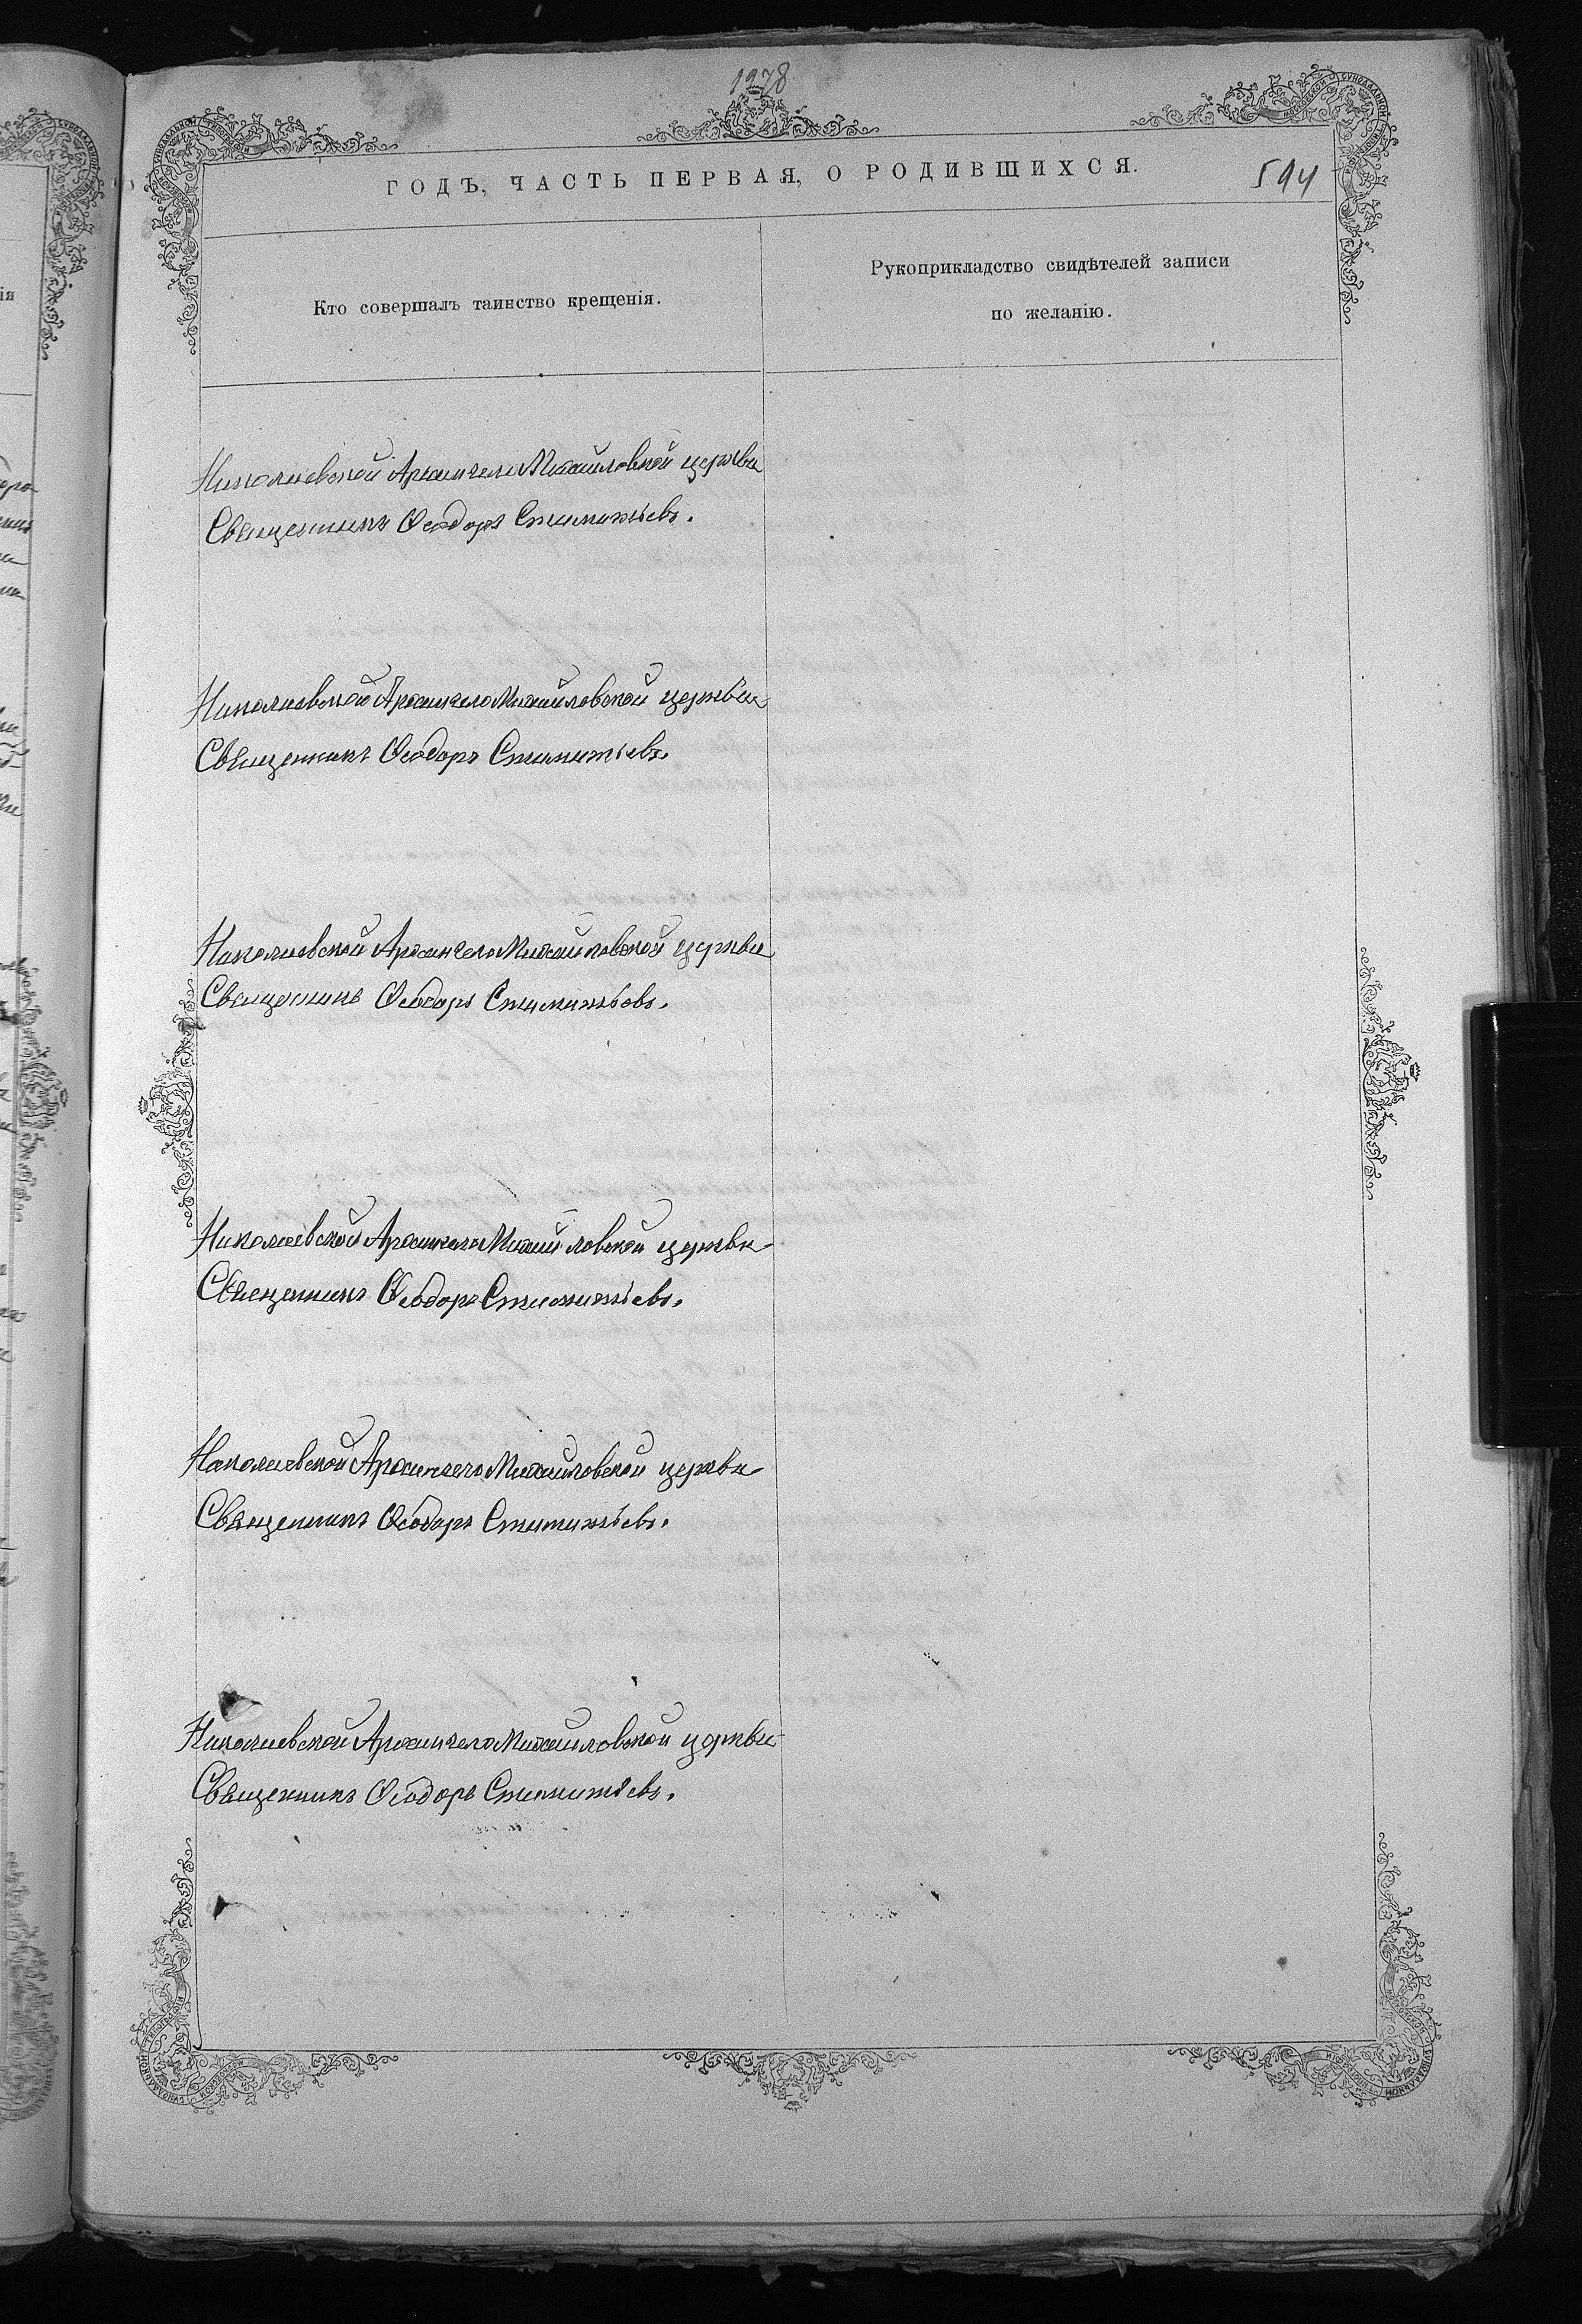 1278
ГОДЪ, ЧАСТЬ ПЕРВАЯ, О РОДИВШИХСЯ.
594
Кто совершалъ таинство крещенія.
Рукоприкладство свидѣтелей записи
по желанію.
Николаевской Архангело Михайловской церкви
Священникъ Ѳеодоръ
Николаевской Архангело Михайловской церкви
Священникъ Ѳеодоръ
Николаевской Архангело Михайловской церкви
Священникъ Ѳеодоръ
Николаевской Архангело Михайловской церкви
Священникъ Ѳеодоръ
Николаевской Архангело Михайловской церкви
Священникъ Ѳеодоръ
Николаевской Архангело Михайловской церкви
Священникъ Ѳеодоръ